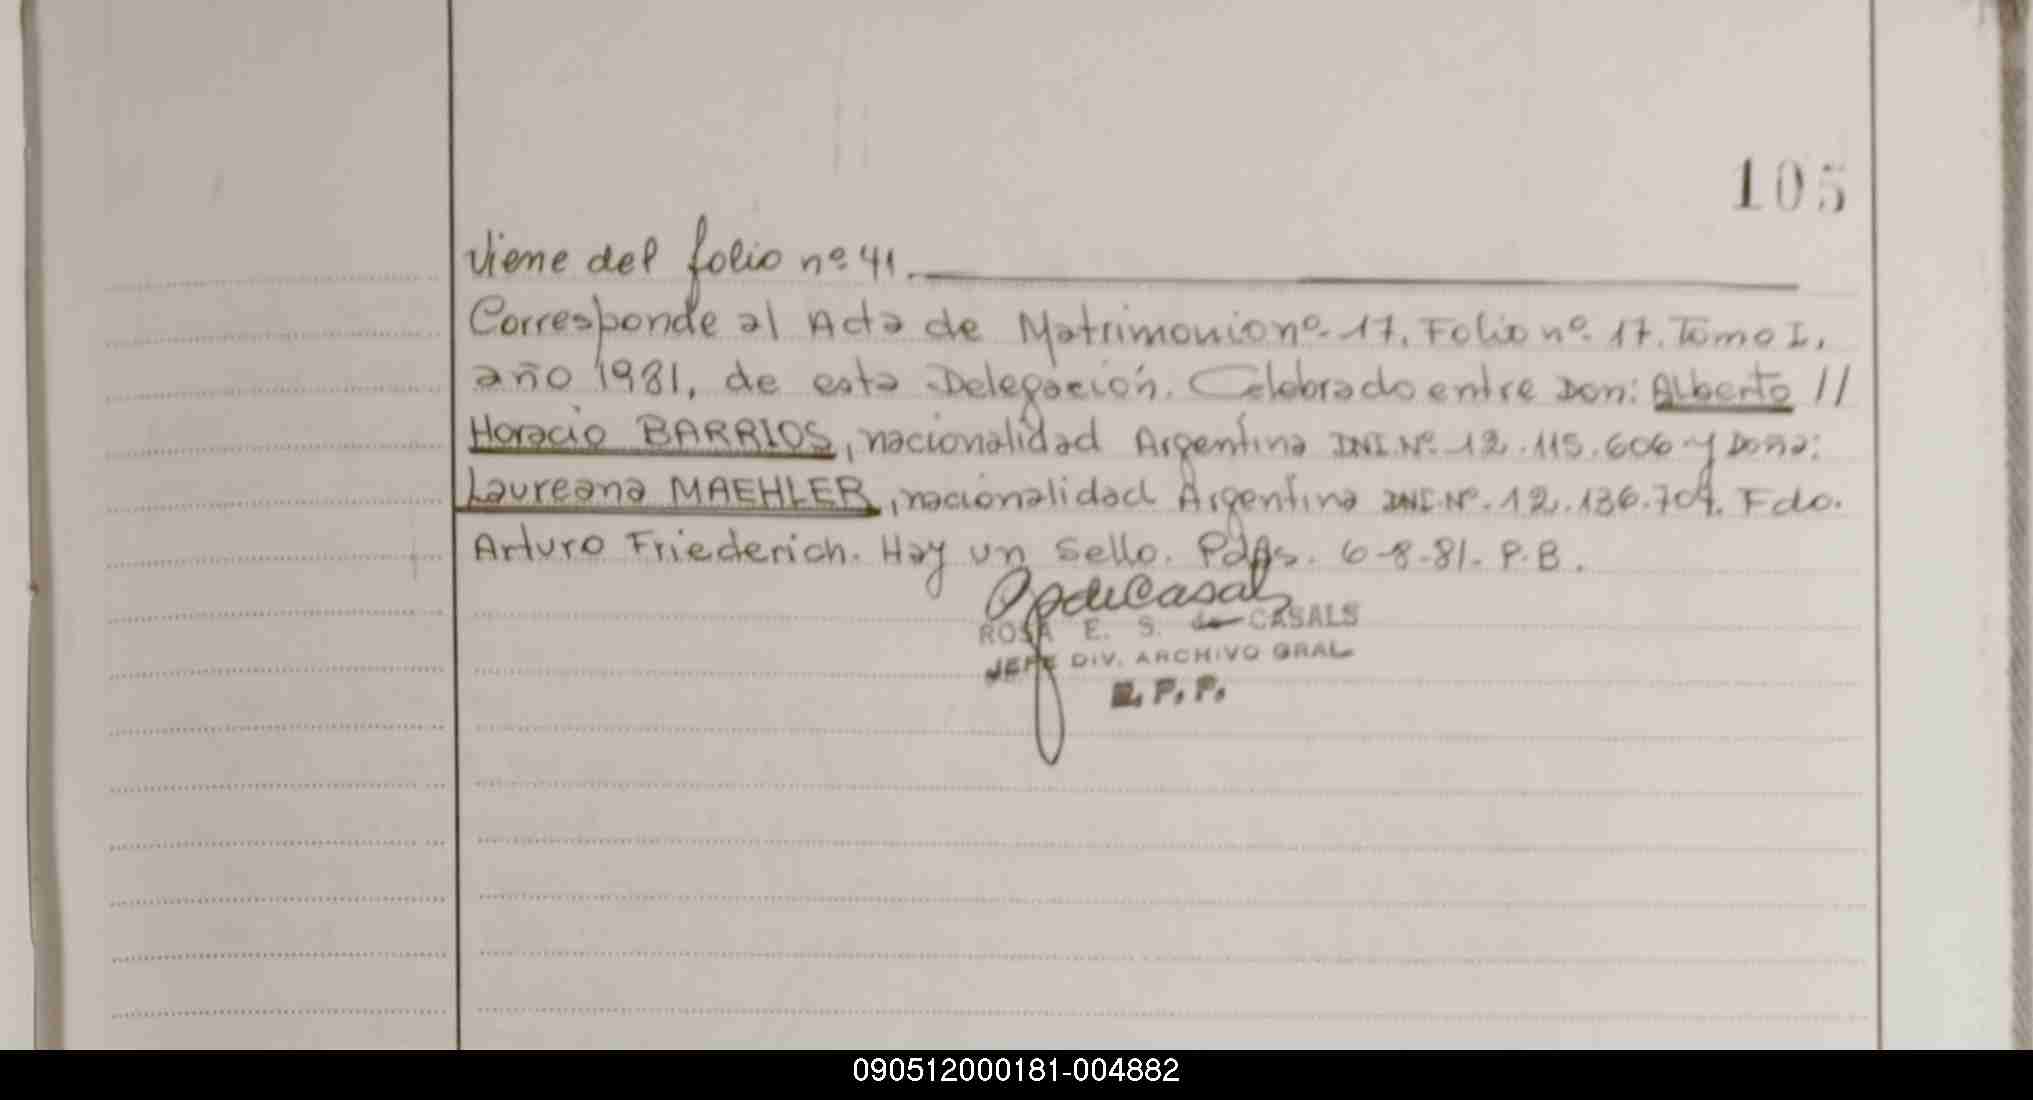 105
Viene del folio nº 41.
Corresponde al Acta de Matrimonio nº 17. Folio nº 17. Tomo I.
año 1981, de esta Delegación. Celebrado entre Don: Alberto //
Horacio BARRIOS, nacionalidad Argentina DNI.Nº 12.115.606 y Doña:
Laureana MAEHLER, nacionalidad Argentina DNI.Nº.12.136.704. Fdo.
Arturo Friederich. Hay un sello. Pdas. 6-8-81. P.B.
ROSA E. S. de CASALS
JEFE DIV. ARCHIVO GRAL
R. P. P.
090512000181-004882